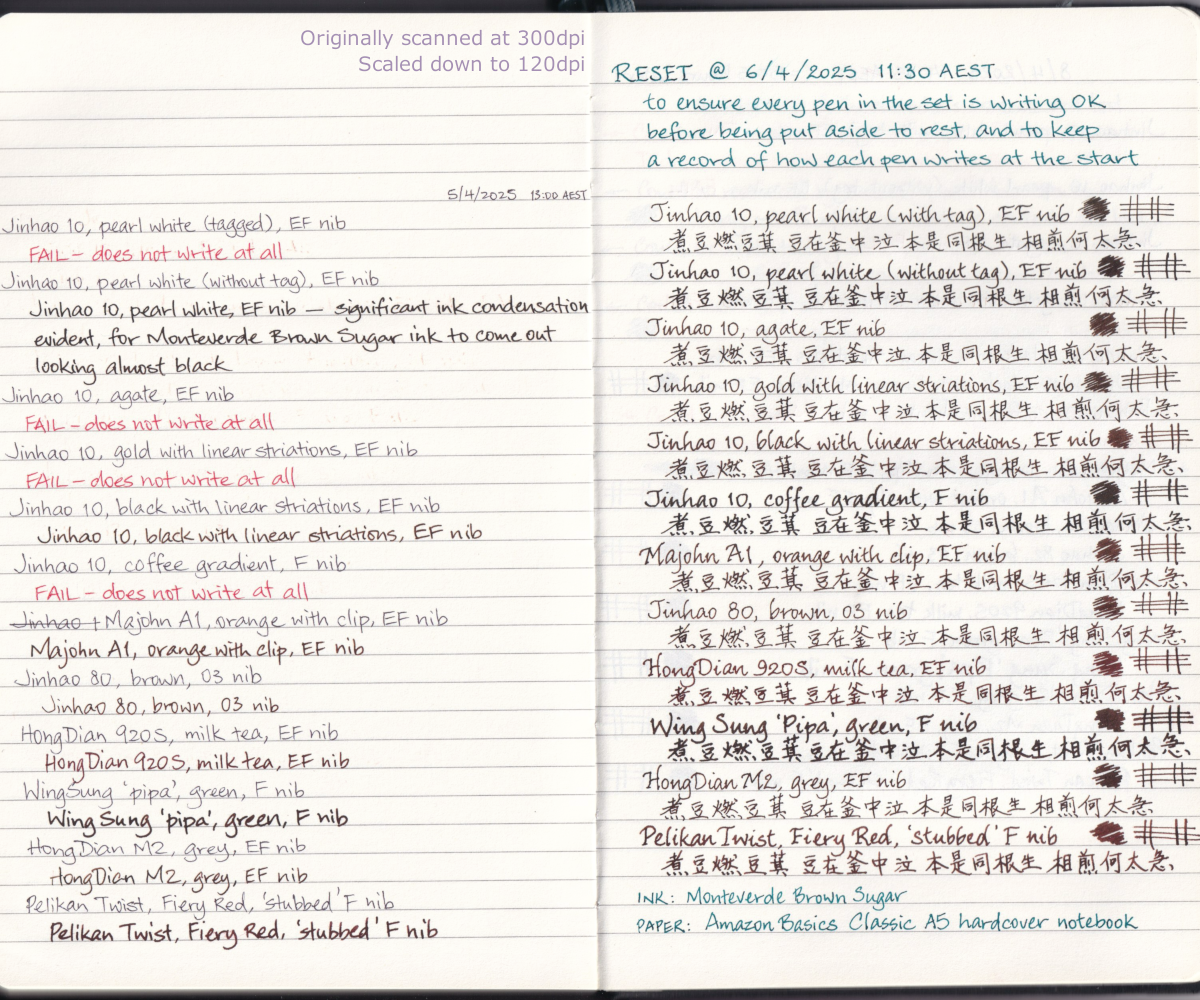 Originally scanned at 300dpi
Scaled down to 120dpi
5/4/2025 13:00 AEST
Jinhao 10, pearl white (tagged), EF nib
FAIL – does not write at all
Jinhao 10, pearl white (without tag), EF nib
Jinhao 10, pearl white, EF nib — significant ink condensation
evident, for Monteverde Brown Sugar ink to come out
looking almost black
Jinhao 10, agate, EF nib
FAIL – does not write at all
Jinhao 10, gold with linear striations, EF nib
FAIL – does not write at all
Jinhao 10, black with linear striations, EF nib
Jinhao 10, black with linear striations, EF nib
Jinhao 10, coffee gradient, F nib
FAIL – does not write at all
Jinhao + Majohn A1, orange with clip, EF nib
Majohn A1, orange with clip, EF nib
Jinhao 80, brown, 03 nib
Jinhao 80, brown, 03 nib
HongDian 920S, milk tea, EF nib
HongDian 920S, milk tea, EF nib
WingSung 'pipa', green, F nib
Wing Sung 'pipa', green, F nib
HongDian M2, grey, EF nib
HongDian M2, grey, EF nib
Pelikan Twist, Fiery Red, 'stubbed' F nib
Pelikan Twist, Fiery Red, 'stubbed' F nib
RESET @ 6/4/2025 11:30 AEST
to ensure every pen in the set is writing OK
before being put aside to rest, and to keep
a record of how each pen writes at the start
Jinhao 10, pearl white (with tag), EF nib
煮豆燃豆萁 豆在釜中泣 本是同根生 相煎何太急
Jinhao 10, pearl white (without tag), EF nib
煮豆燃豆萁 豆在釜中泣 本是同根生 相煎何太急
Jinhao 10, agate, EF nib
煮豆燃豆萁 豆在釜中泣 本是同根生 相煎何太急
Jinhao 10, gold with linear striations, EF nib
煮豆燃豆萁 豆在釜中泣 本是同根生 相煎何太急
Jinhao 10, black with linear striations, EF nib
煮豆燃豆萁 豆在釜中泣 本是同根生 相煎何太急
Jinhao 10, coffee gradient, F nib
煮豆燃豆萁 豆在釜中泣 本是同根生 相煎何太急
Majohn A1, orange with clip, EF nib
煮豆燃豆萁 豆在釜中泣 本是同根生 相煎何太急
Jinhao 80, brown, 03 nib
煮豆燃豆萁 豆在釜中泣 本是同根生 相煎何太急
HongDian 920S, milk tea, EF nib
煮豆燃豆萁 豆在釜中泣 本是同根生 相煎何太急
Wing Sung 'Pipa', green, F nib
煮豆燃豆萁 豆在釜中泣 本是同根生 相煎何太急
HongDian M2, grey, EF nib
煮豆燃豆萁 豆在釜中泣 本是同根生 相煎何太急
Pelikan Twist, Fiery Red, 'stubbed' F nib
煮豆燃豆萁 豆在釜中泣 本是同根生 相煎何太急
INK: Monteverde Brown Sugar
PAPER: Amazon Basics Classic A5 hardcover notebook